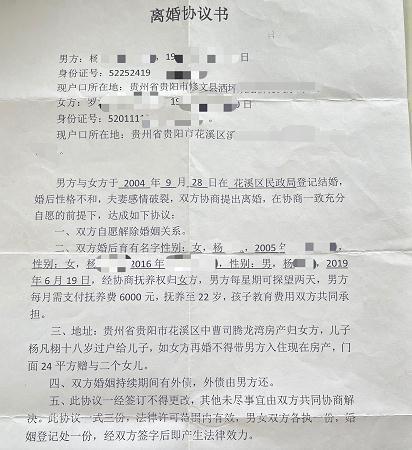 离婚协议书
男方：杨 ，19 日
身份证号：52252419
现户口所在地：贵州省贵阳市修文县洒坪
女方：罗 19 日
身份证号：5201111 。
现户口所在地：贵州省贵阳市花溪区
男方与女方于 2004 年 9 月 28 日在 花溪区民政局登记结婚，
婚后性格不和，夫妻感情破裂，双方协商提出离婚，在协商一致充分
自愿的前提下，达成如下协议：
一、双方自愿解除婚姻关系。
二、双方婚后育有名字性别：女，杨 ，2005 年
性别：女，杨 2016 年 ，性别：男，杨 ，2019
年 6 月 19 日，经协商抚养权归女方，男方每星期可探望两天，男方
每月需支付抚养费 6000 元，抚养至 22 岁，孩子教育费用双方共同承
担。
三、地址：贵州省贵阳市花溪区中曹司腾龙湾房产归女方，儿子
杨凡栩十八岁过户给儿子，如女方再婚不得带男方入住现在房产，门
面 24 平方赠与二个女儿。
四、双方婚姻持续期间有外债，外债由男方还。
五、此协议一经签订不得更改，其他未尽事宜由双方共同协商解
决。此协议一式三份，法律许可范围内有效，男女双方各执一份，婚
姻登记处一份，经双方签字后即产生法律效力。